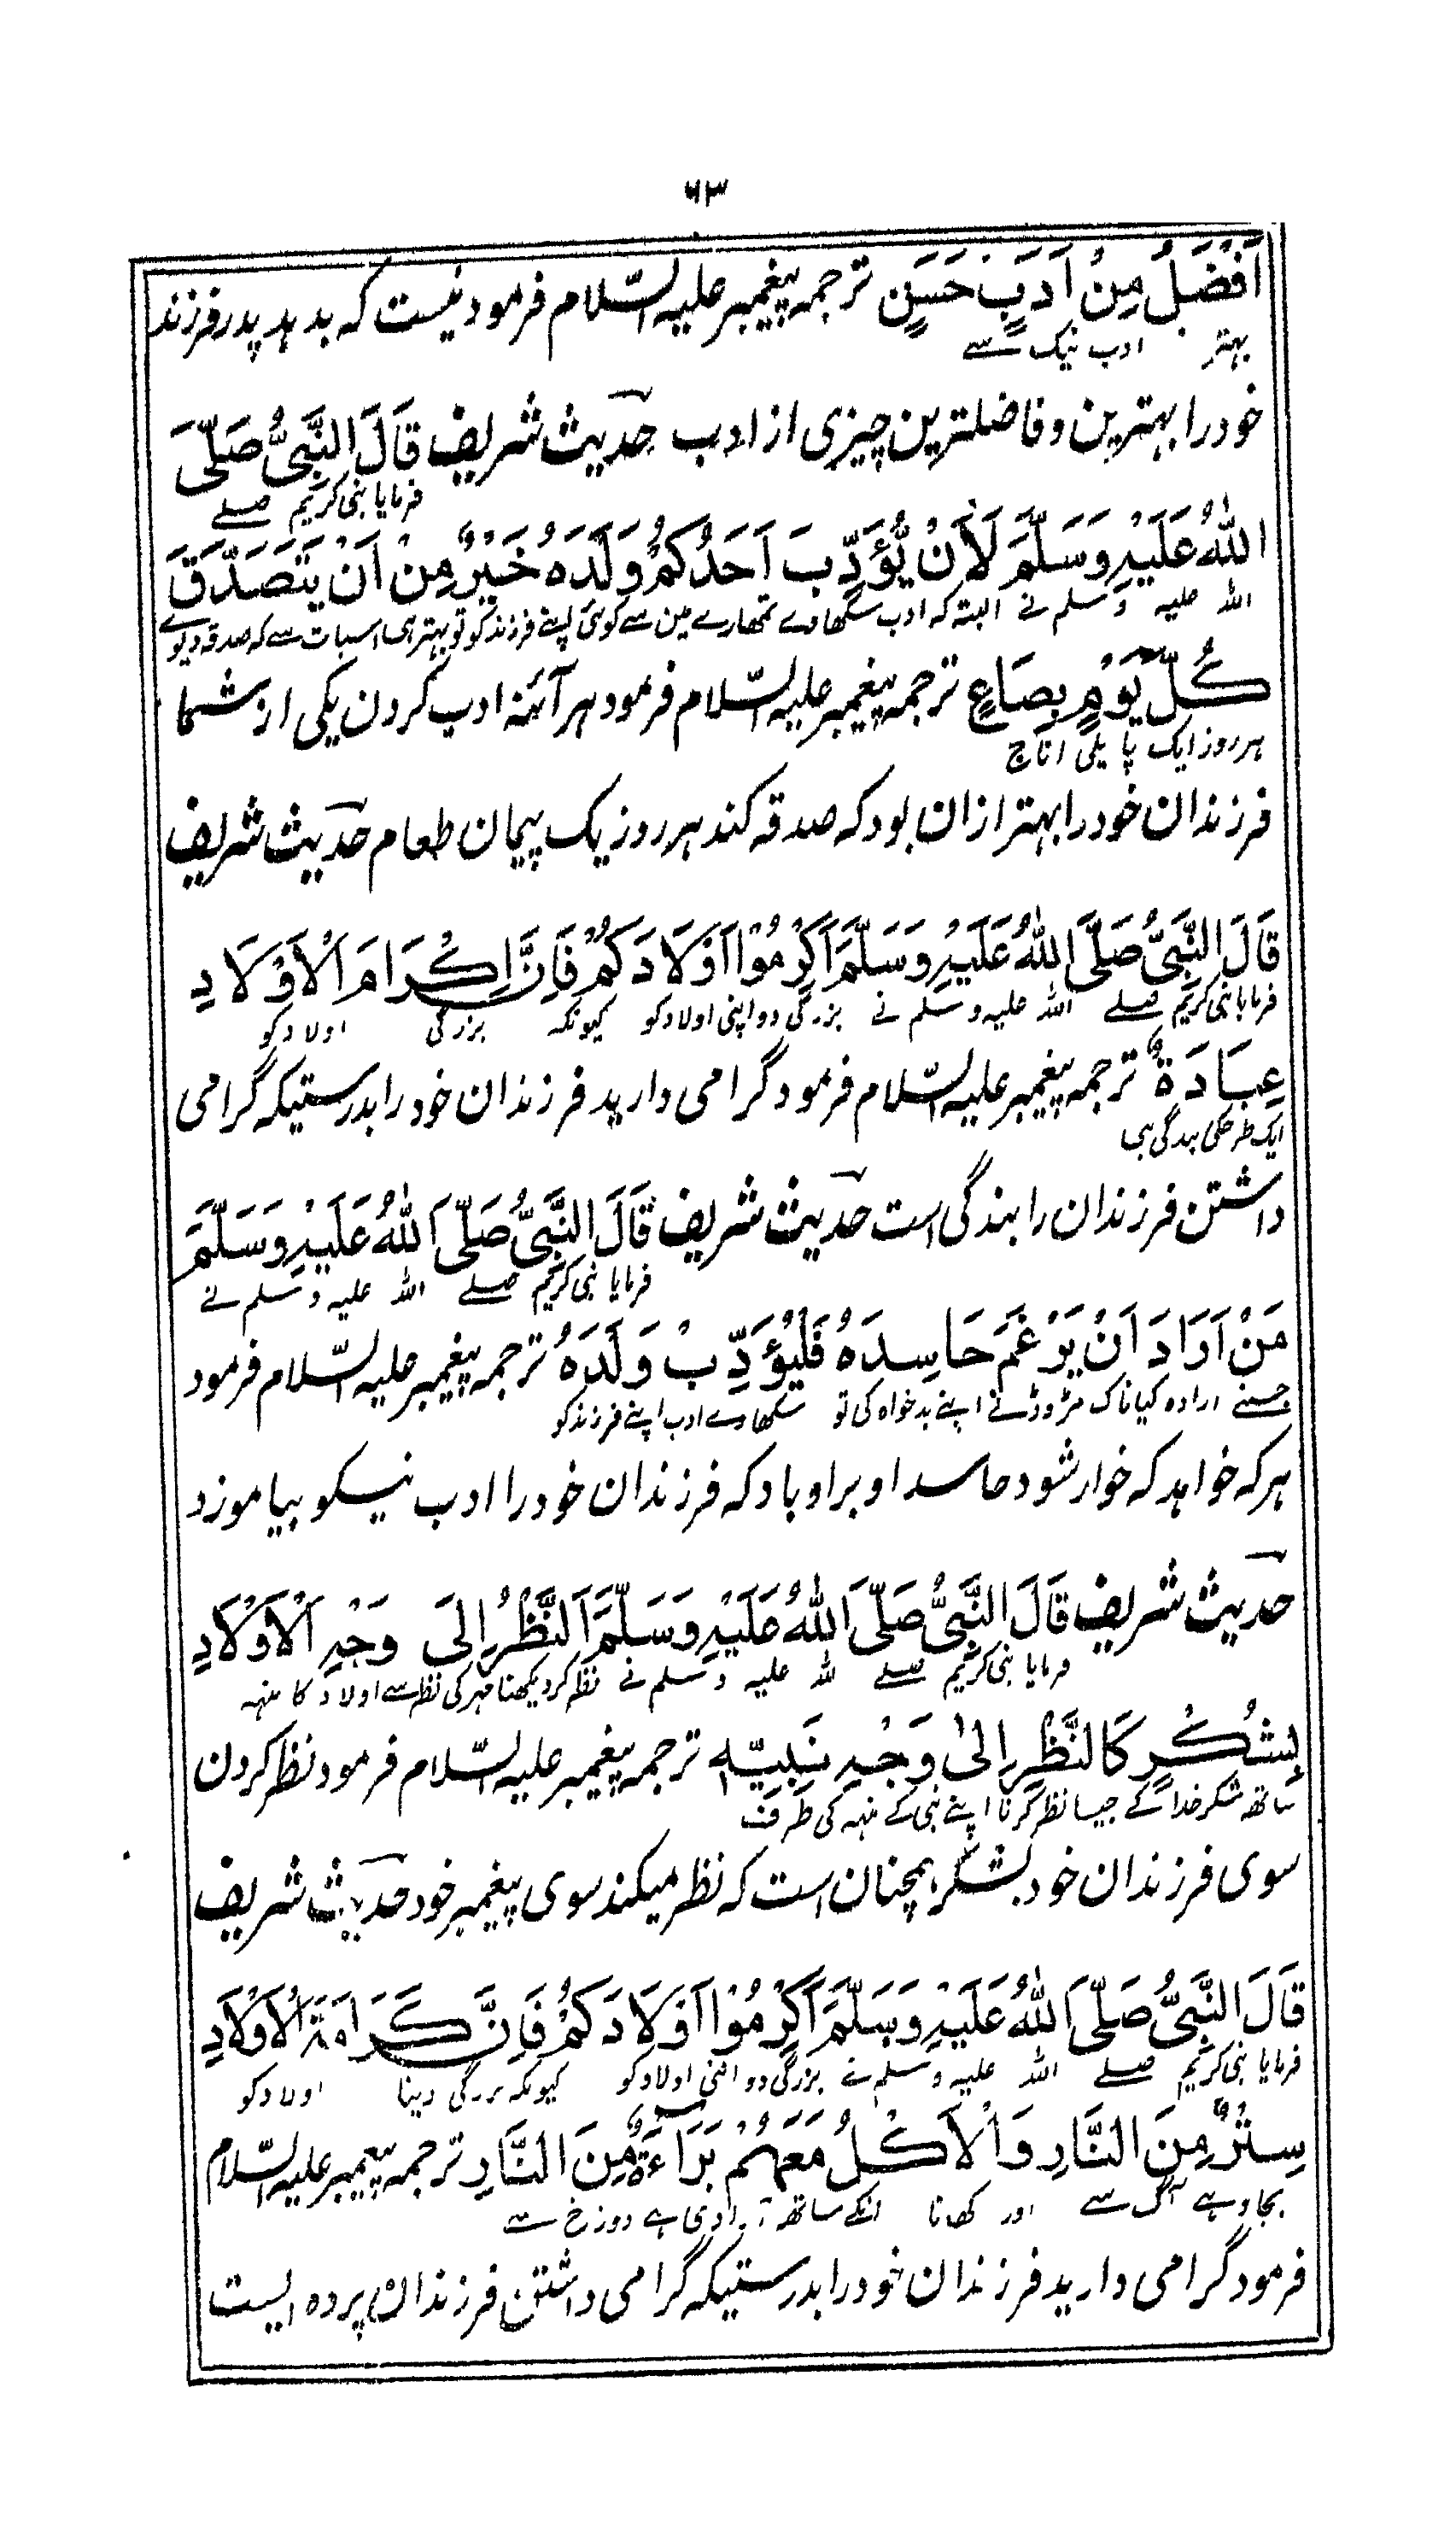 ٦٣
اَفْضَلُ مِنْ اَدَبٍ حَسَنٍ ترجمہ پیغمبر علیہ السّلام فرمود نیست کہ بدہد پدر فرزند
بہتر ادب نیک سے
خود را بہترین و فاضلترین چیزی از ادب حدیث شریف قَالَ النَّبِیُّ صَلَّی
فرمایا نبی کریم صلے
اللہُ عَلَیْہِ وَسَلَّمَ لَاَنْ یُّؤَدِّبَ اَحَدُکُمْ وَلَدَہٗ خَیْرٌ مِنْ اَنْ یَتَصَدَّقَ
اللہ علیہ وسلم نے البتہ کہ ادب سکھاوے تمھارے مین سے کوئی اپنے فرزند کو تو بہتر ہی اسبات سے کہ صدقہ دیوے
کُلَّ یَوْمٍ بِصَاعٍ ترجمہ پیغمبر علیہ السّلام فرمود ہر آئنہ ادب کردن یکی از شما
ہر روز ایک پایلی اناج
فرزندان خود را بہتر ازان بود کہ صدقہ کند ہر روز یک پیمان طعام حدیث شریف
قَالَ النَّبِیُّ صَلَّی اللہُ عَلَیْہِ وَسَلَّمَ اَکْرِمُوْا اَوْلَادَکُمْ فَاِنَّ اِکْرَامَ الْاَوْلَادِ
فرمایا نبی کریم صلے اللہ علیہ وسلم نے بزرگی دو اپنی اولاد کو کیونکہ بزرگی اولاد کو
عِبَادَۃٌ ترجمہ پیغمبر علیہ السّلام فرمود گرامی دارید فرزندان خود را بدرستیکہ گرامی
ایک طرحکی بندگی ہی
داشتن فرزندان را بندگی است حدیث شریف قَالَ النَّبِیُّ صَلَّی اللہُ عَلَیْہِ وَسَلَّمَ
فرمایا نبی کریم صلے اللہ علیہ وسلم نے
مَنْ اَرَادَ اَنْ یَرْغَمَ حَاسِدَہٗ فَلْیُؤَدِّبْ وَلَدَہٗ ترجمہ پیغمبر علیہ السّلام فرمود
جسنے ارادہ کیا ناک مڑوڑنے اپنے بدخواہ کی تو سکھاوے ادب اپنے فرزند کو
ہر کہ خواہد کہ خوار شود حاسد او بر او باد کہ فرزندان خود را ادب نیکو بیاموزد
حدیث شریف قَالَ النَّبِیُّ صَلَّی اللہُ عَلَیْہِ وَسَلَّمَ اَلنَّظْرُ اِلَی وَجْہِ الْاَوْلَادِ
فرمایا نبی کریم صلے اللہ علیہ وسلم نے نظر کر دیکھنا مہر کی نظر سے اولاد کا منہہ
بِشُکْرٍ کَالنَّظَرِ اِلیٰ وَجْہِ نَبِیِّہٖ ترجمہ پیغمبر علیہ السّلام فرمود نظر کردن
ساتھ شکر خدا کے جیسا نظر کرنا اپنے نبی کے منہہ کی طرف
سوی فرزندان خود بشکر ہمچنان است کہ نظر میکند سوی پیغمبر خود حدیث شریف
قَالَ النَّبِیُّ صَلَّی اللہُ عَلَیْہِ وَسَلَّمَ اَکْرِمُوْا اَوْلَادَکُمْ فَاِنَّ کَرَامَۃَ الْاَوْلَادِ
فرمایا نبی کریم صلے اللہ علیہ وسلم نے بزرگی دو اپنی اولاد کو کیونکہ بزرگی دینا اولاد کو
سِتْرٌ مِنَ النَّارِ وَالْاَکْلُ مَعَہُمْ بَرَاءَۃٌ مِنَ النَّارِ ترجمہ پیغمبر علیہ السّلام
بچاو ہے آگ سے اور کھانا انکے ساتھ آزادی ہے دوزخ سے
فرمود گرامی دارید فرزندان خود را بدرستیکہ گرامی داشتن فرزندان پردہ ایست